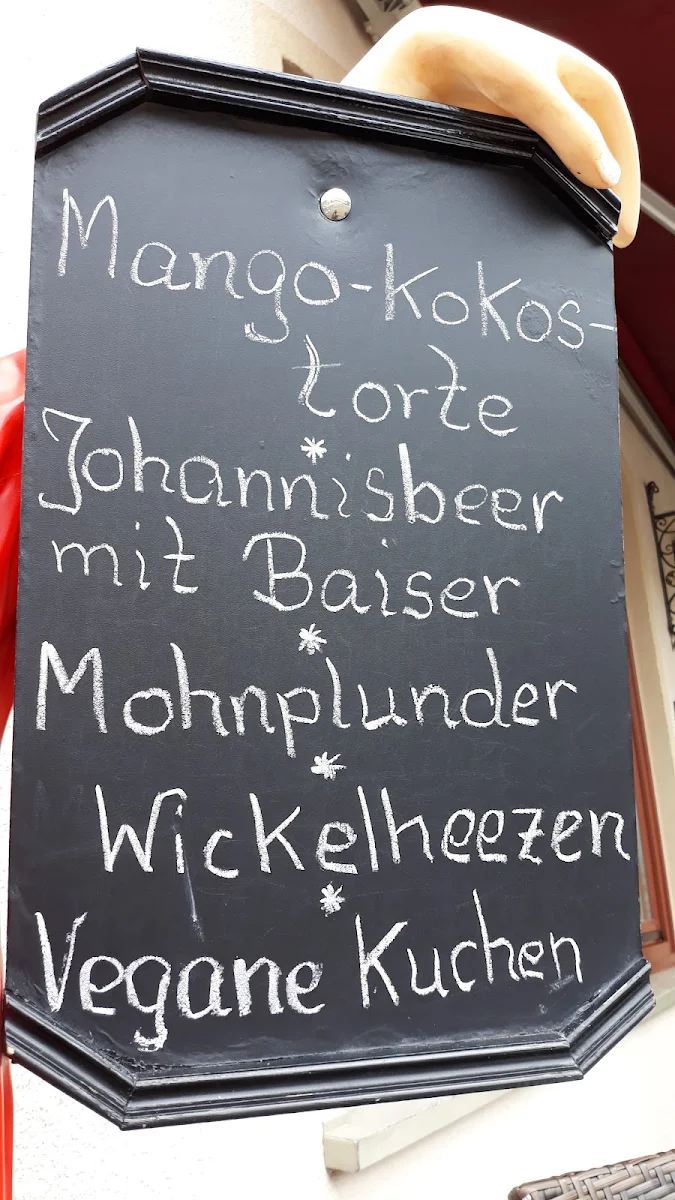 Mango-Kokos-
torte
*
Johannisbeer
mit Baiser
*
Mohnplunder
*
Wickelheezen
*
Vegane Kuchen